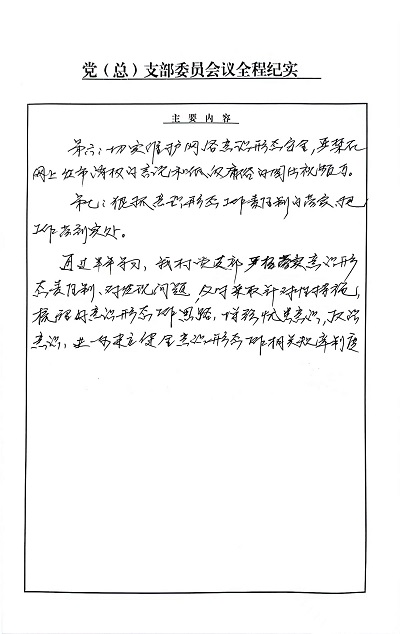 党（总）支部委员会议全程纪实
主要内容
第六：切实维护网络意识形态安全，严禁在
网上发布涉权的言论和低级庸俗的图片视频等。
第七：狠抓意识形态工作责任制的落实，把
工作落到实处。
通过学习，我村党支部严格落实意识形
态责任制、对发现问题，及时采取针对性措施，
梳理好意识形态工作思路，增强忧患意识，政治
意识，进一步建立健全意识形态工作相关规章制度